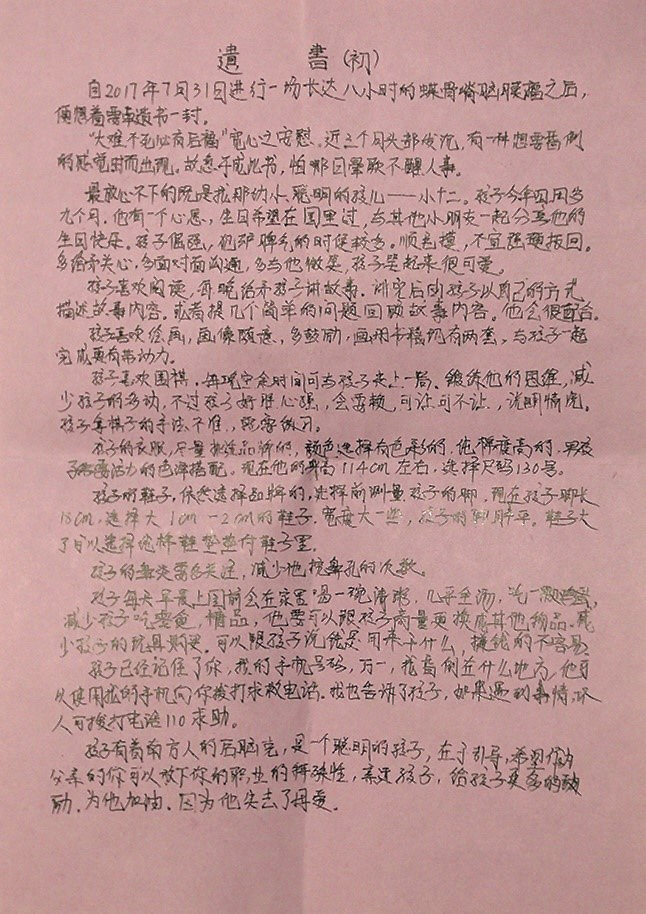 遺 書(初)
自2017年7月31日进行一场长达八小时的蝶骨嵴脑膜瘤之后,
便想着要书遗书一封。
"大难不死必有后福"宽心之安慰。近三个月头部发沉,有一种想要摔倒
的感觉时而出现。故念手成此书,怕哪日晕厥不醒人事。
最放心不下的既是我那幼小、聪明的孩儿——小十二。孩子今年四周多
九个月。他有一个心愿,生日希望在园里过,与其他小朋友一起分享他的
生日快乐。孩子倔强,他犟脾气的时候较多。顺毛摸,不宜强硬扳回。
多给予关心,多面对面沟通,多与他微笑,孩子笑起来很可爱。
孩子喜欢阅读,每晚给予孩子讲故事。讲完后由孩子以自己的方式
描述故事内容。或者提几个简单的问题回顾故事内容。他会很配合。
孩子喜欢绘画,画像随意,多鼓励,画册书稿仍有两套,与孩子一起
完成更有带动力。
孩子喜欢围棋。每晚空余时间可与孩子来上一局。锻炼他的思维,减
少孩子的多动,不过孩子好胜心强,会耍赖,可让可不让,说明情况。
孩子拿棋子的手法不准,需要练习。
孩子的衣服,尽量挑选品牌的,颜色选择有色彩的,纯棉度高的,男孩
子需要活力的色泽搭配。现在他的身高114cm左右,选择尺码130号。
孩子的鞋子,依然选择品牌的,选择前测量孩子的脚,现在孩子脚长
18cm,选择大1cm-2cm的鞋子。宽度大一些,孩子的脚背平。鞋子大
了可以选择纯棉鞋垫垫付鞋子里。
孩子的鼻炎需多关注,减少他挖鼻孔的次数。
孩子每天早晨上园前会在家里喝一碗清粥,几乎全汤,吃一颗鸡蛋,
减少孩子吃零食、糖品,他要可以跟孩子商量更换成其他物品。减
少孩子的玩具购买。可以跟孩子说钱是用来干什么,挣钱的不容易。
孩子已经记住了你、我的手机号码,万一,我离倒在什么地方,他可
以使用我的手机向你拨打求救电话。我也告诉了孩子,如果遇到事情坏
人可拨打电话110求助。
孩子有着南方人的后脑壳,是一个聪明的孩子,在于引导,希望作为
父亲的你可以放下你的职业的特殊性,亲近孩子,给孩子更多的鼓
励,为他加油。因为他失去了母爱。